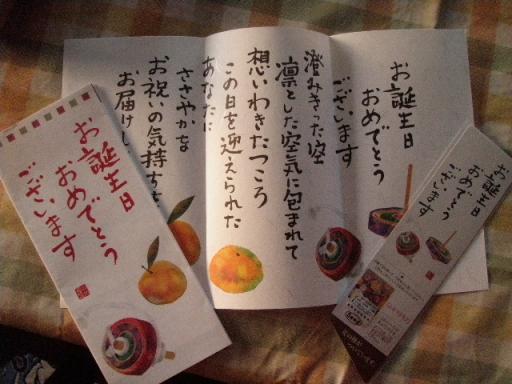 お誕生日
おめでとう
ございます
澄みきった空
凛とした空気に包まれて
想いわきたつころ
この日を迎えられた
あなたに
ささやかな
お祝いの気持ちを
お届けし
お誕生日
おめでとう
ございます
お誕生日
おめでとう
ございます